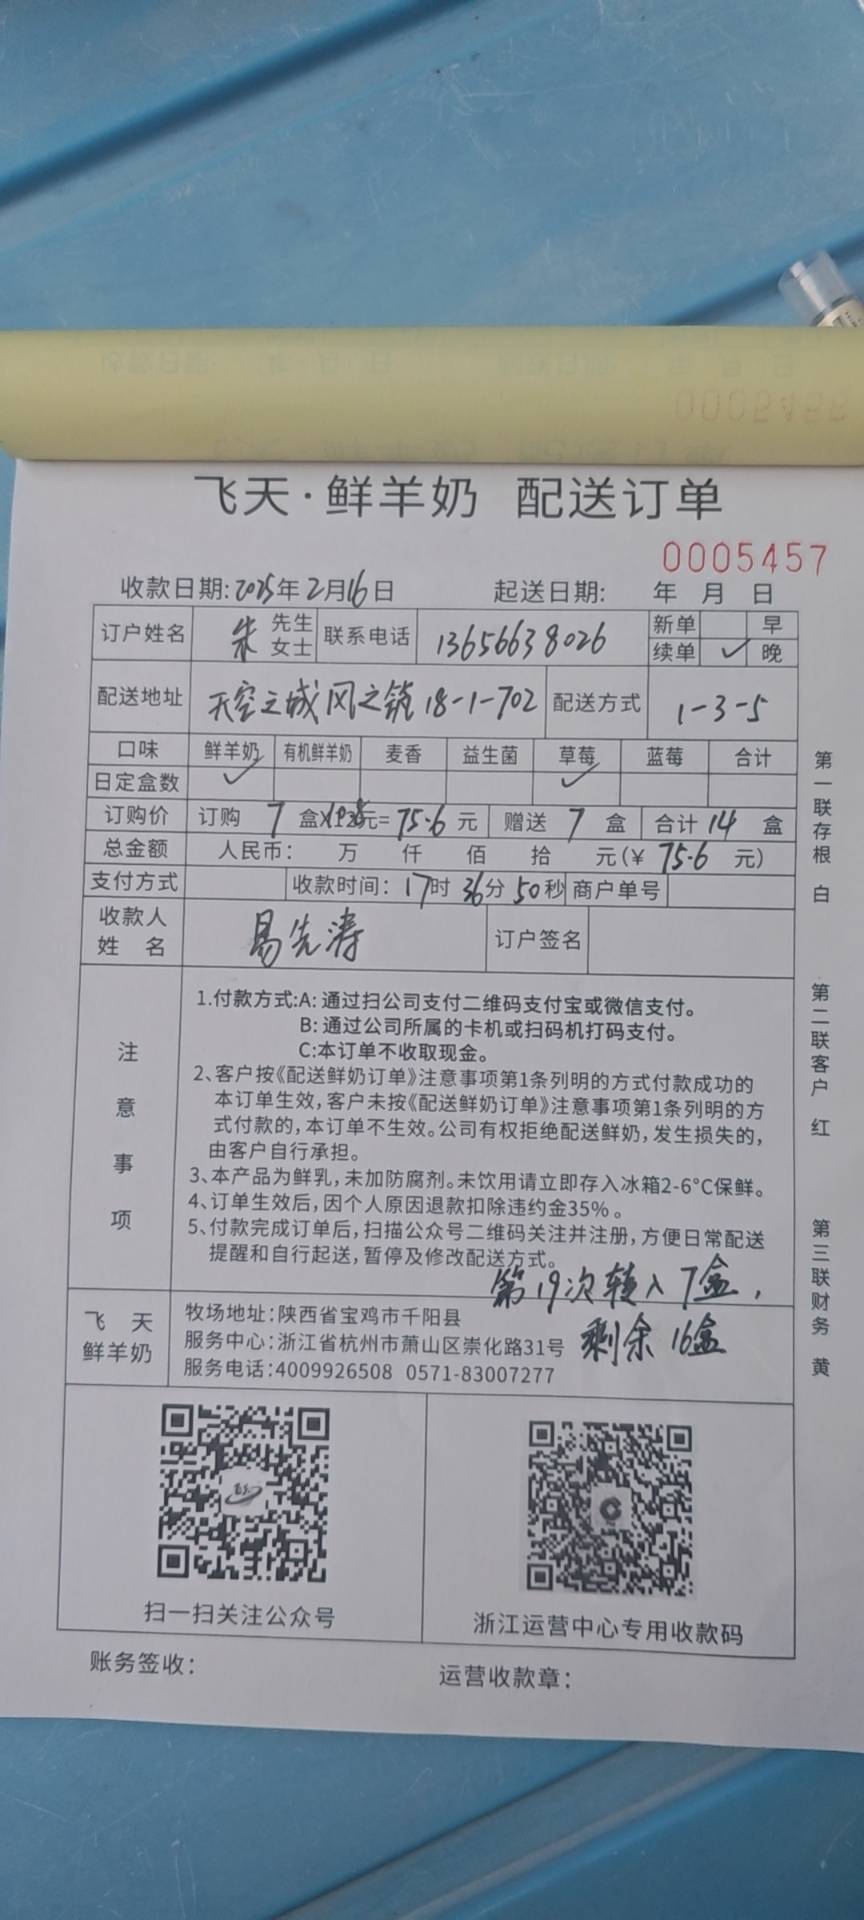 飞天·鲜羊奶 配送订单
0005457
收款日期:2025年2月16日 起送日期: 年 月 日
订户姓名 朱 先生 女士 联系电话 13656638026 新单 早
续单 ✓ 晚
配送地址 天空之城风之筑18-1-702 配送方式 1-3-5
口味 鲜羊奶 有机鲜羊奶 麦香 益生菌 草莓 蓝莓 合计
日定盒数 ✓ ✓
订购价 订购 7 盒 元= 75.6 元 赠送 7 盒 合计 14 盒
总金额 人民币: 万 仟 佰 拾 元(¥ 75.6 元)
支付方式 收款时间: 17时36分50秒 商户单号
收款人 姓 名 易先涛 订户签名
注意事项
1.付款方式:A:通过扫公司支付二维码支付宝或微信支付。
B:通过公司所属的卡机或扫码机打码支付。
C:本订单不收取现金。
2、客户按《配送鲜奶订单》注意事项第1条列明的方式付款成功的
本订单生效,客户未按《配送鲜奶订单》注意事项第1条列明的方
式付款的,本订单不生效。公司有权拒绝配送鲜奶,发生损失的,
由客户自行承担。
3、本产品为鲜乳,未加防腐剂。未饮用请立即存入冰箱2-6°C保鲜。
4、订单生效后,因个人原因退款扣除违约金35%。
5、付款完成订单后,扫描公众号二维码关注并注册,方便日常配送
提醒和自行起送,暂停及修改配送方式。
第19次转入7盒,
剩余16盒
飞 天
鲜羊奶
牧场地址:陕西省宝鸡市千阳县
服务中心:浙江省杭州市萧山区崇化路31号
服务电话:4009926508 0571-83007277
扫一扫关注公众号
浙江运营中心专用收款码
账务签收:
运营收款章:
第一联存根 白
第二联客户 红
第三联财务 黄